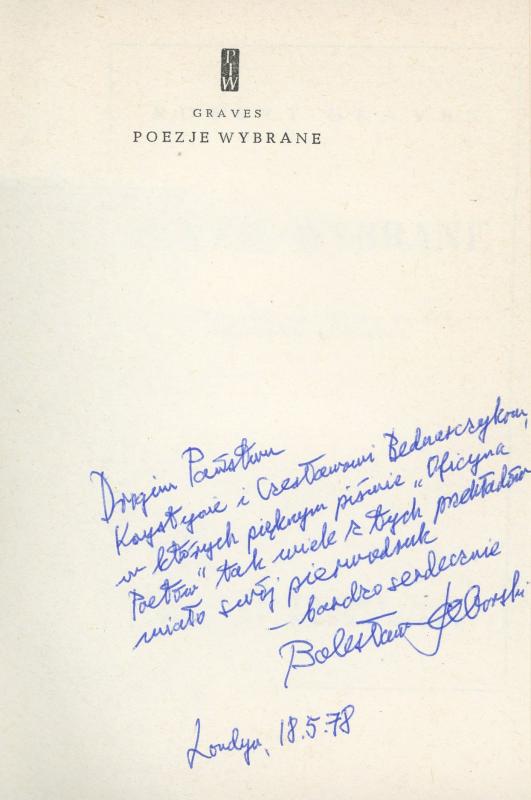 PIW
GRAVES
POEZJE WYBRANE
Drogim Państwu
Krystynie i Czesławowi Bednarczykom,
w których pięknym piśmie „Oficyna
Poetów” tak wiele z tych przekładów
miało swój pierwodruk
– bardzo serdecznie
Bolesław Taborski
Londyn, 18.5.78